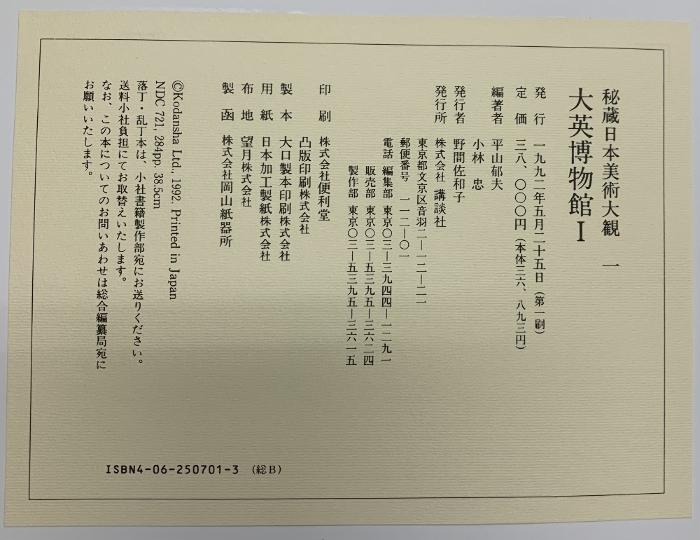 秘蔵日本美術大観 一
大英博物館I
発行 一九九二年五月二十五日(第一刷)
定価 三八、〇〇〇円(本体三六、八九三円)
編著者 平山郁夫
小林 忠
発行者 野間佐和子
発行所 株式会社 講談社
東京都文京区音羽二―一二―二一
郵便番号 一一二―〇一
電話 編集部 東京〇三―三九四四―一二九一
販売部 東京〇三―五三九五―三六二四
製作部 東京〇三―五三九五―三六一五
印刷 株式会社便利堂
凸版印刷株式会社
製本 大口製本印刷株式会社
用紙 日本加工製紙株式会社
布地 望月株式会社
製函 株式会社岡山紙器所
©Kodansha Ltd., 1992. Printed in Japan
NDC 721, 284pp. 38.5cm
落丁・乱丁本は、小社書籍製作部宛にお送りください。
送料小社負担にてお取替えいたします。
なお、この本についてのお問いあわせは総合編纂局宛に
お願いいたします。
ISBN4-06-250701-3 (総B)